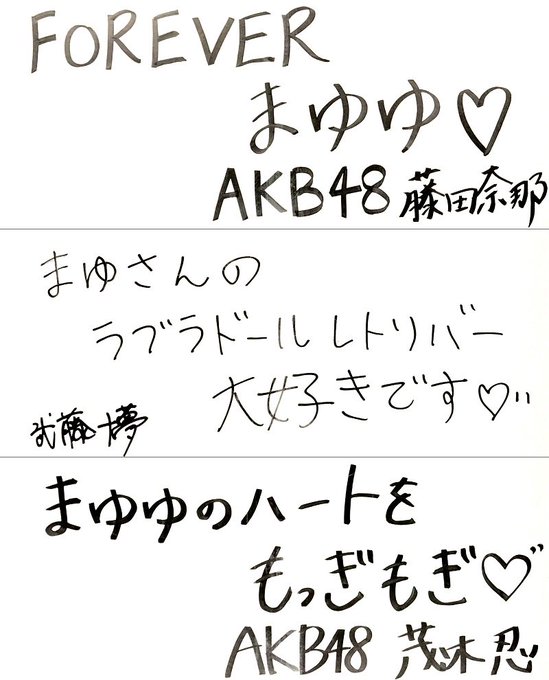 FOREVER
まゆゆ♡
AKB48 藤田奈那
まゆさんの
ラブラドールレトリバー
大好きです♡
武藤十夢
まゆゆのハートを
もっぎもぎ♡
AKB48 茂木忍